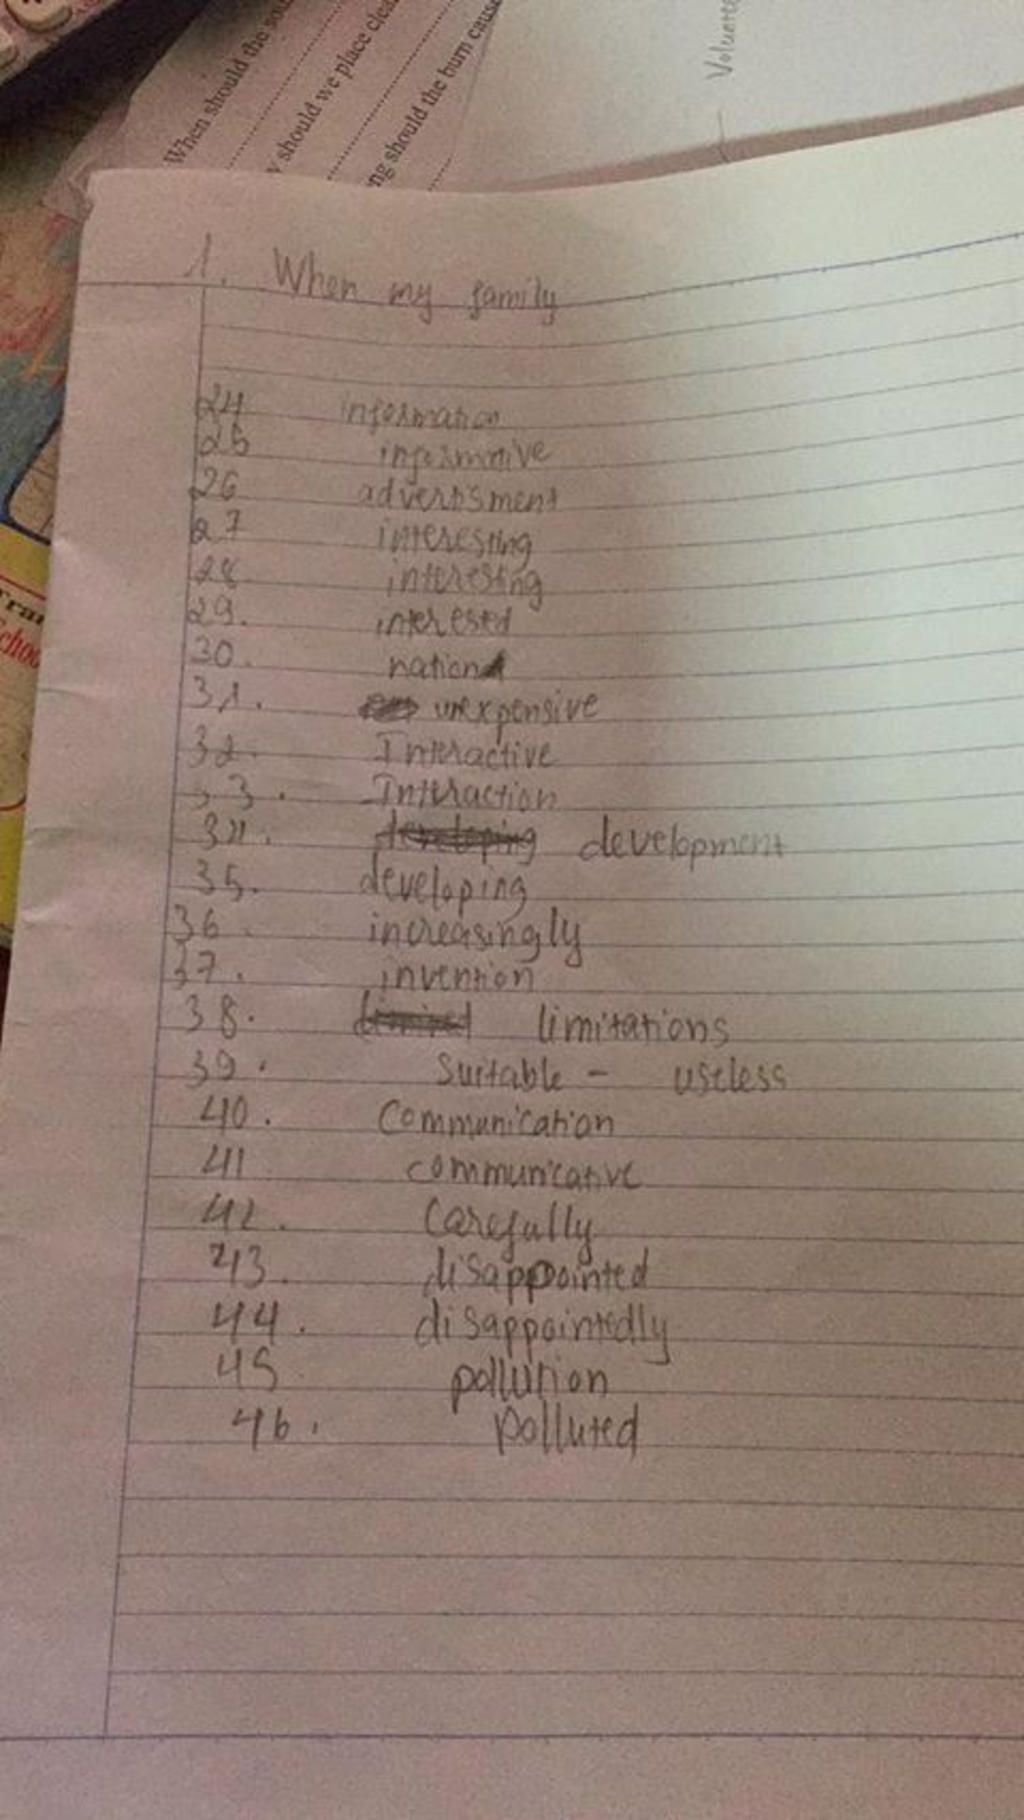 When should the
should we place clea
ng should the burn cause
Volunte
1. When my family
24 information
25 informative
26 advertisment
27 interesting
28 interesting
29. interested
30. nation
31. unexpensive
32. Interactive
33. Interaction
34. developing development
35. developing
36. increasingly
37. invention
38. limitations
39. Suitable - useless
40. Communication
41 communicative
42. Carefully
43. disappointed
44. disappointedly
45 pollution
46. polluted